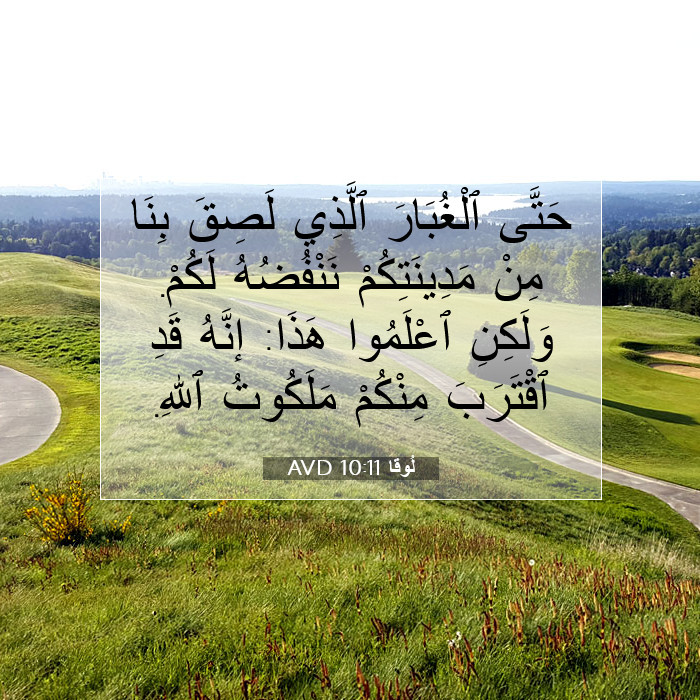 حَتَّى ٱلْغُبَارَ ٱلَّذِي لَصِقَ بِنَا
مِنْ مَدِينَتِكُمْ نَنْفُضُهُ لَكُمْ.
وَلَكِنِ ٱعْلَمُوا هَذَا: إنَّهُ قَدِ
ٱقْتَرَبَ مِنْكُمْ مَلَكُوتُ ٱللهِ.
لُوقا 10:11 AVD